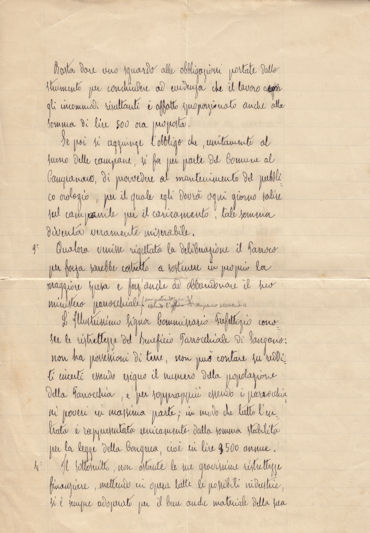 Basta dare uno sguardo alle obbligazioni portate dallo
strumento per conchiudere ad evidenza che il lavoro con
gli incommodi risultanti è affatto sproporzionato anche alla
somma di lire 500 ora proposta.
Se poi si aggiunge l'obbligo che, unitamente al
suono delle campane, si fa per parte del Comune al
Campanaro, di provvedere al mantenimento del pubbli-
co orologio, per il quale egli dovrà ogni giorno salire
sul campanile per il caricamento, tale somma
diventa veramente miserabile.
Qualora venisse rigettata la deliberazione il Parroco
per forza sarebbe costretto a sostenere in proprio la
maggiore spesa e forse anche ad abbandonare il suo
ministero parrocchiale
L'Illustrissimo Signor Commissario Prefettizio cono-
sce le ristrettezze del beneficio Parrocchiale di
non ha possessioni di terre, non può contare su reddi-
ti incerti essendo esiguo il numero della popolazione
della Parrocchia, e per soprappiù essendo i parrocchia-
ni poveri in massima parte; in modo che tutta l'en-
trata è rappresentata unicamente dalla somma stabilita
per la legge della Congrua, cioè in lire 2500 annue.
Il sottoscritto, non ostante le sue gravissime ristrettezze
finanziarie, mettendo in opera tutte le possibili industrie,
si è sempre adoperato per il bene anche materiale della sua